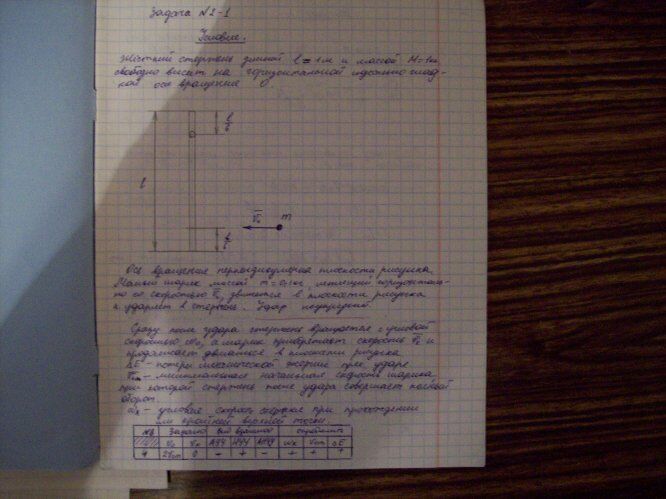 Задача №1-1
Условие.
Жёсткий стержень длиной l = 1м и массой M=1кг
свободно висит на горизонтальной идеально глад-
кой оси вращения O.
l
l
V₀
m
l
Ось вращения перпендикулярна плоскости рисунка.
Малый шарик массой m=0,1кг, летящий горизонталь-
но со скоростью V₀ движется в плоскости рисунка
и ударяет в стержень. Удар
Сразу после удара стержень вращается с угловой
скоростью ω₀, а шарик приобретает скорость и
продолжает двигаться в плоскости рисунка
ΔE - потери механической энергии при ударе
Vm - минимальная начальная скорость шарика
при которой стержень после удара совершает полный
оборот.
ωk - угловая скорость стержня при прохождении
им крайней верхней точки.
№В Задано Вид удара определить
V₀ АУУ НУУ АНУУ ωk Vm ΔE
4 2Vm 0 - + - + + +